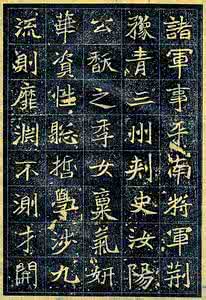 諸軍事平南將軍荊
豫青三州刺史汝陽
公猷之季女稟氣妍
華資性聡哲學涉九
流則靡淵不測才開